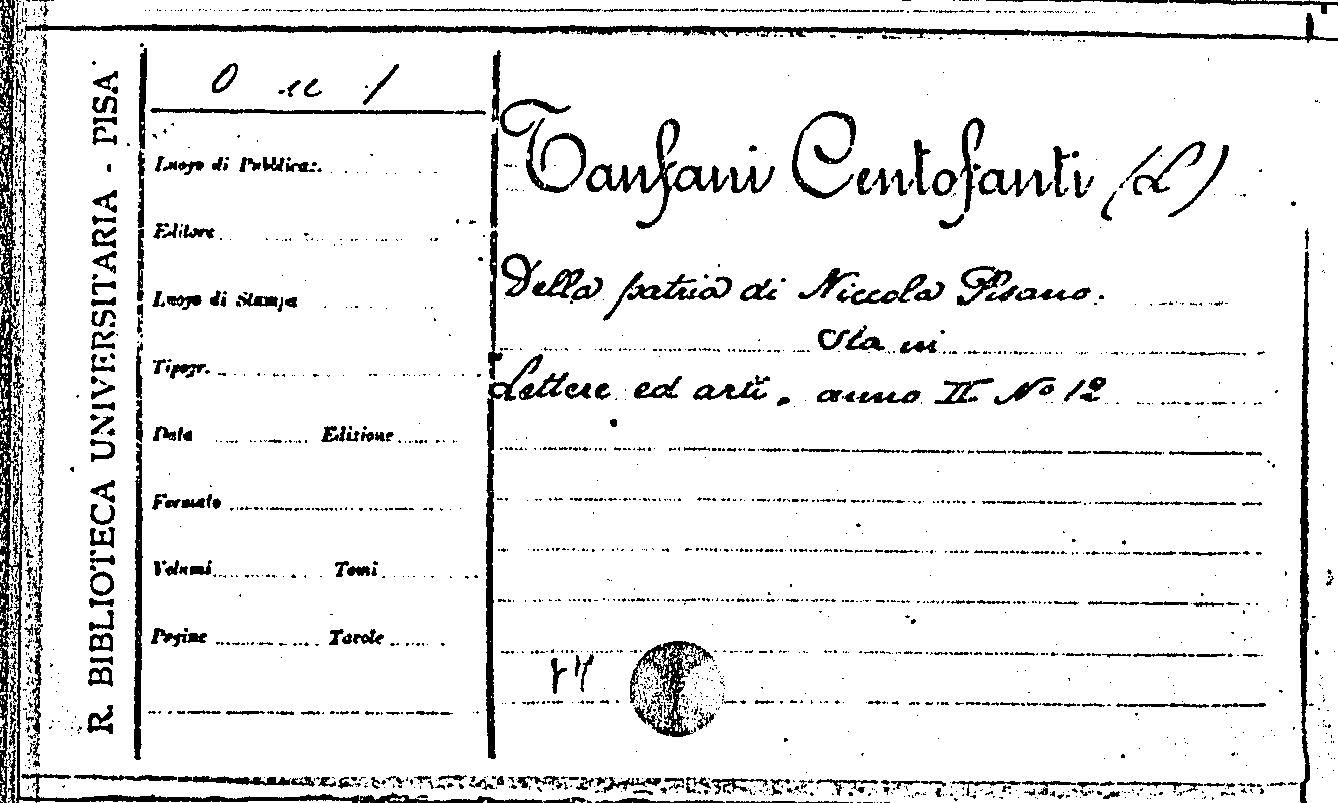 R. BIBLIOTECA UNIVERSITARIA - PISA
O u 1
Luogo di Pubblicaz.
Editore
Luogo di Stampa
Tipogr.
Data Edizione
Formato
Volumi Tomi
Pagine Tavole
Tanfani Centofanti (L)
Della patria di Niccola Pisano.
Sta in
Lettere ed arti, anno II No 12